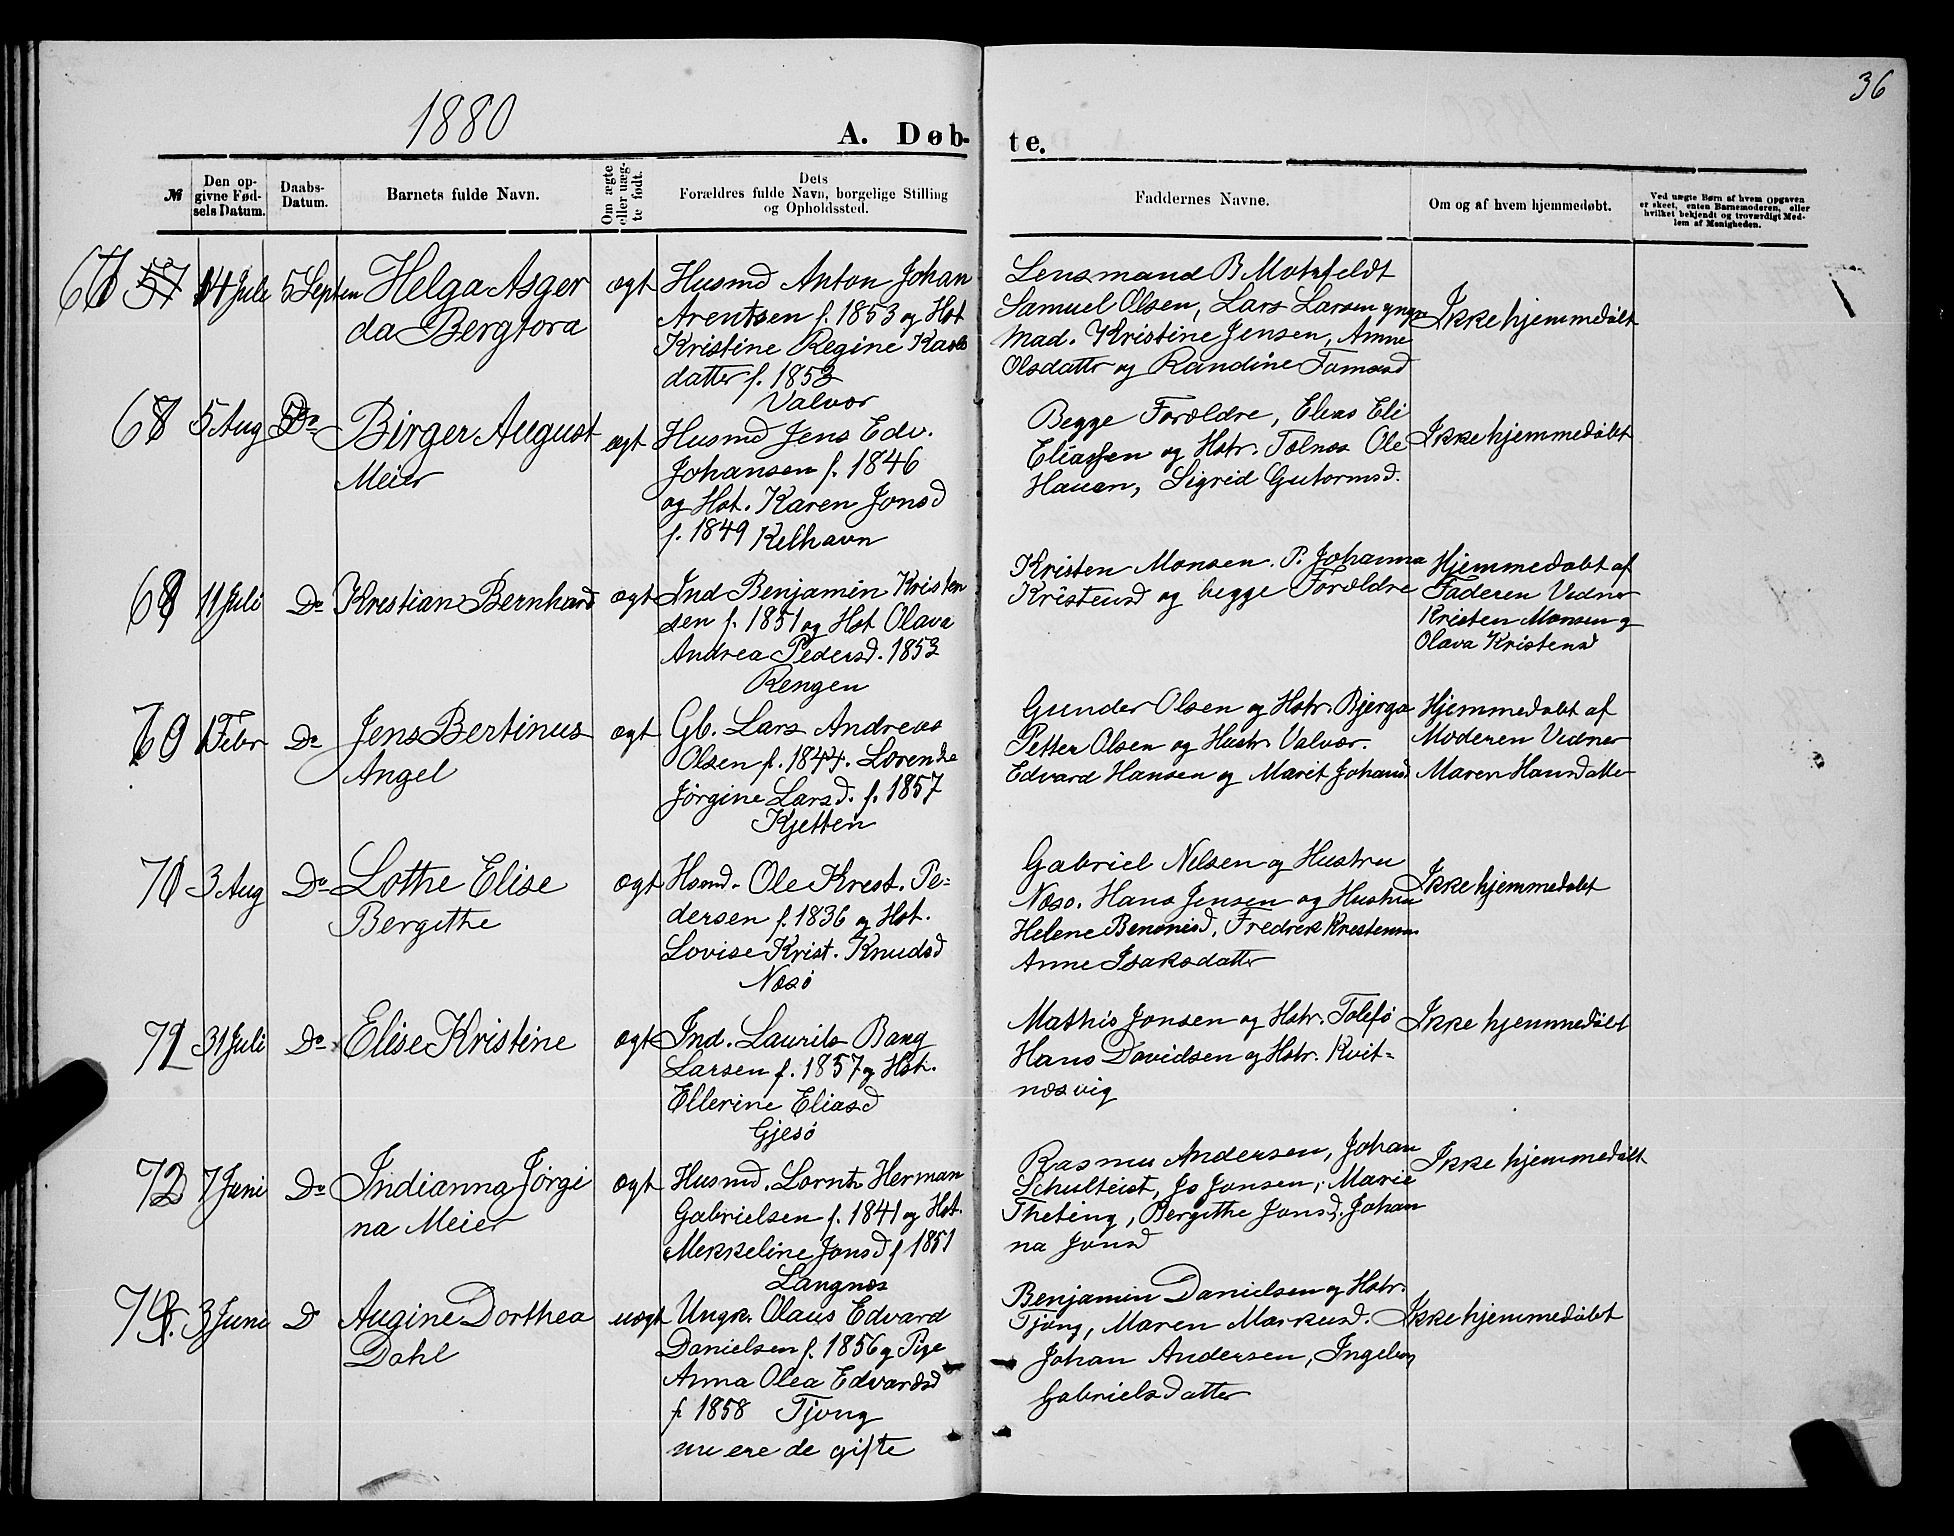 36
1880
A. Døbte.
№
Den opgivne Fødsels Datum.
Daabs-Datum.
Barnets fulde Navn.
Om ægte eller uægte født.
Dets Forældres fulde Navn, borgelige Stilling og Opholdssted.
Faddernes Navne.
Om og af hvem hjemmedøbt.
Ved uægte Børn af hvem Opgaven er skeet, enten Barnemoderen, eller hvilket bekjendt og troværdigt Medlem af Menigheden.
14 Juli 5 Septem
Helga Asger
da Bergtora
ægt
Husmd Anton Johan
Arentsen f. 1853 og Hst
Kristine Regine Karls
datter f. 1853
Valvær
Lensmand B Motzfeldt
Samuel Olsen, Lars Larsen yngr
Mad. Kristine Jensen, Anne
Olsdatter og Randine Tomasd
Ikke hjemmedøbt
5 Aug Do
Birger August
Meier
ægt
Husmd Jens Edv.
Johansen f. 1846
og Hst. Karen Jonsd
f. 1849 Kelhavn
Begge Forældre, Elias Eli
Eliassen og Hstr. Tolnæs Ole
Hauan, Sigrid Gutormsd.
Ikke hjemmedøbt
68 11 Juli Do
Kristian Bernhard
ægt
Ind Benjamin Kristen
sen f. 1851 og Hst Olava
Andrea Pedersd. 1853
Rengen
Kristen Monsen. P. Johanna
Kristensd og begge Forældre
Hjemmedøbt af
Faderen Vedner
Kristen Monsen og
Olava Kristensd
69 1 Febr Do
Jens Bertinus
Angel
ægt
Gb. Lars Andreas
Olsen f. 1844. Lorentze
Jørgine Larsd. f. 1857
Kjetten
Gunder Olsen og Hstr. Bjerga
Petter Olsen og Hustr. Valvær.
Edvard Hansen og Marit Johansd
Hjemmedøbt af
Moderen Vedner
Maren Hansdatter
70 3 Aug Do
Lothe Elise
Bergithe
ægt
Hsmd. Ole Krist. Pe-
dersen f. 1836 og Hst.
Lovise Krist. Knudsd
Næsø
Gabriel Nilsen og Hustru
Næsø. Hans Jensen og Hustru
Helene Benonisd, Fredrik Kristensen
Anne Isaksdatter
Ikke hjemmedøbt
71 31 Juli Do
Elise Kristine
ægt
Ind. Laurits Bang
Larsen f. 1857 og Hst.
Ellerine Eliasd
Gjesø
Mathis Jonsen og Hstr. Tolefø
Hans Davidsen og Hstr. Kvit-
næsvig
Ikke hjemmedøbt
72 7 Juni Do
Indianna Jørgi
na Meier
ægt
Husmd. Lornts Herman
Gabrielsen f. 1841 og Hst.
Mekkeline Jonsd f 1851
Langnæs
Rasmus Andersen, Johan
Schulteist, Jo Jonsen, Marie
Theting, Bergithe Jonsd. Johan
na Jonsd
Ikke hjemmedøbt
3 Juni Do
Augine Dorthea
Dahl
uægt
Ungk. Olaus Edvard
Danielsen f. 1856 og Pige
Anna Olea Edvardsd
f. 1858 Tjong
nu ere de gifte
Benjamin Danielsen og Hstr.
Tjong, Maren Markusd.
Johan Andersen, Ingeborg
Gabrielsdatter
Ikke hjemmedøbt